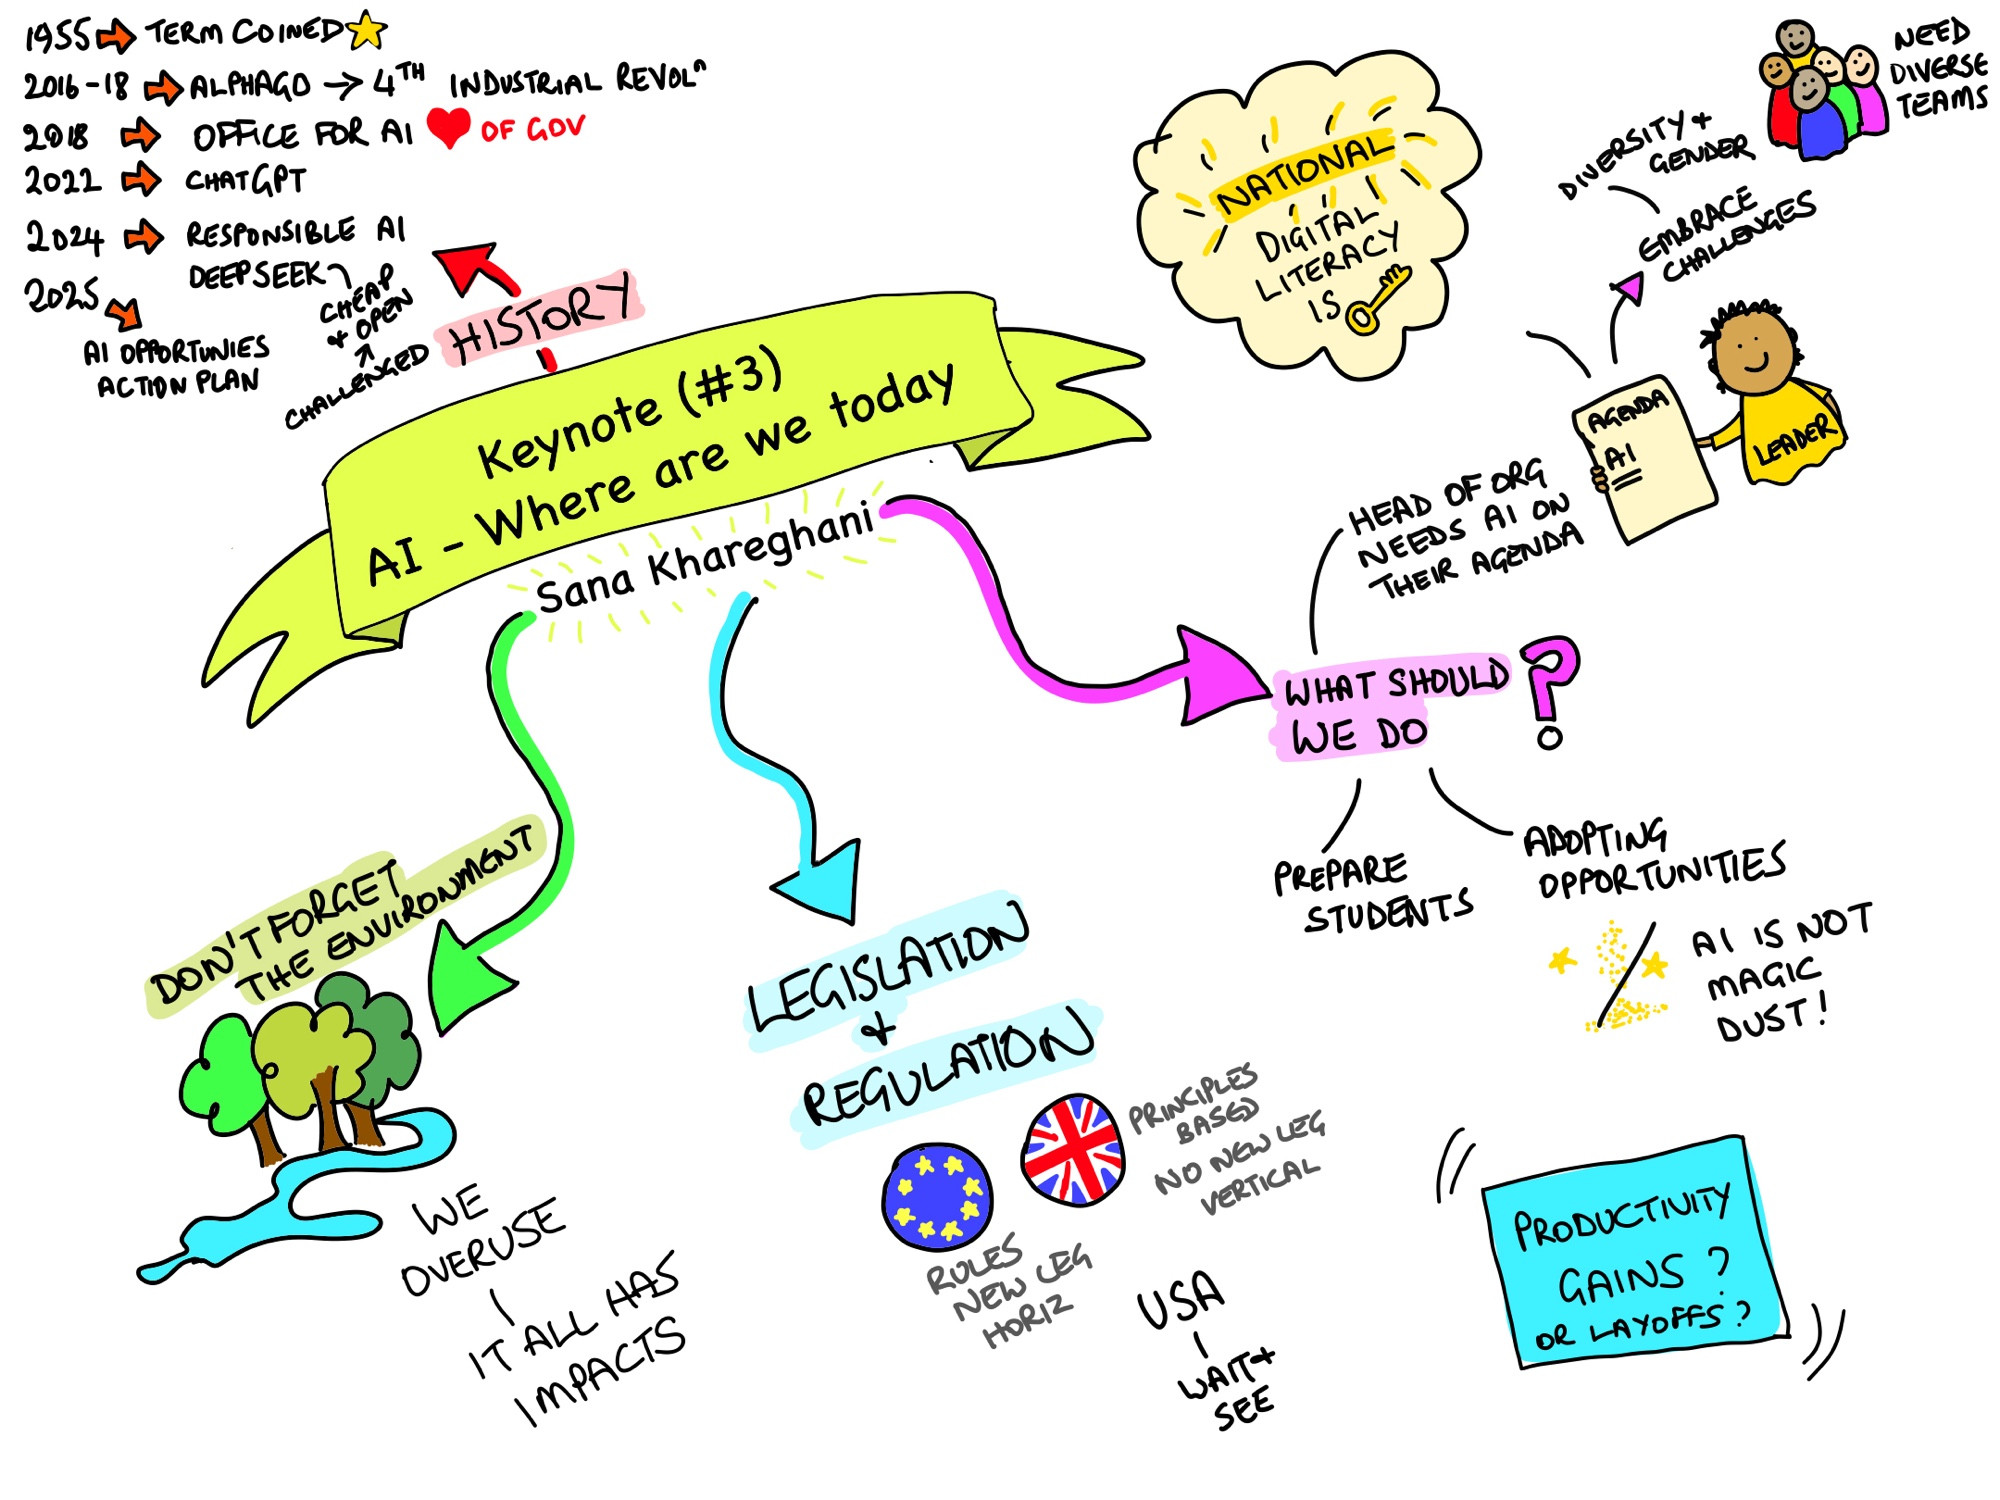 1955 → TERM COINED
2016-18 → ALPHAGO → 4TH INDUSTRIAL REVOLn
2018 → OFFICE FOR AI ♥ OF GOV
2022 → CHATGPT
2024 → RESPONSIBLE AI
DEEPSEEK
CHEAP
+ OPEN
CHALLENGED
2025
AI OPPORTUNIES
ACTION PLAN
HISTORY
Keynote (#3)
AI - Where are we today
Sana Khareghani
NATIONAL
DIGITAL
LITERACY
IS
NEED
DIVERSE
TEAMS
DIVERSITY +
GENDER
EMBRACE
CHALLENGES
AGENDA
AI
LEADER
HEAD OF ORG
NEEDS AI ON
THEIR AGENDA
WHAT SHOULD
WE DO ?
PREPARE
STUDENTS
ADOPTING
OPPORTUNITIES
AI IS NOT
MAGIC
DUST!
DON'T FORGET
THE ENVIRONMENT
WE
OVERUSE
IT ALL HAS
IMPACTS
LEGISLATION
+
REGULATION
PRINCIPLES
BASED
NO NEW LEG
VERTICAL
RULES
NEW LEG
HORIZ
USA
WAIT +
SEE
PRODUCTIVITY
GAINS?
OR LAYOFFS?